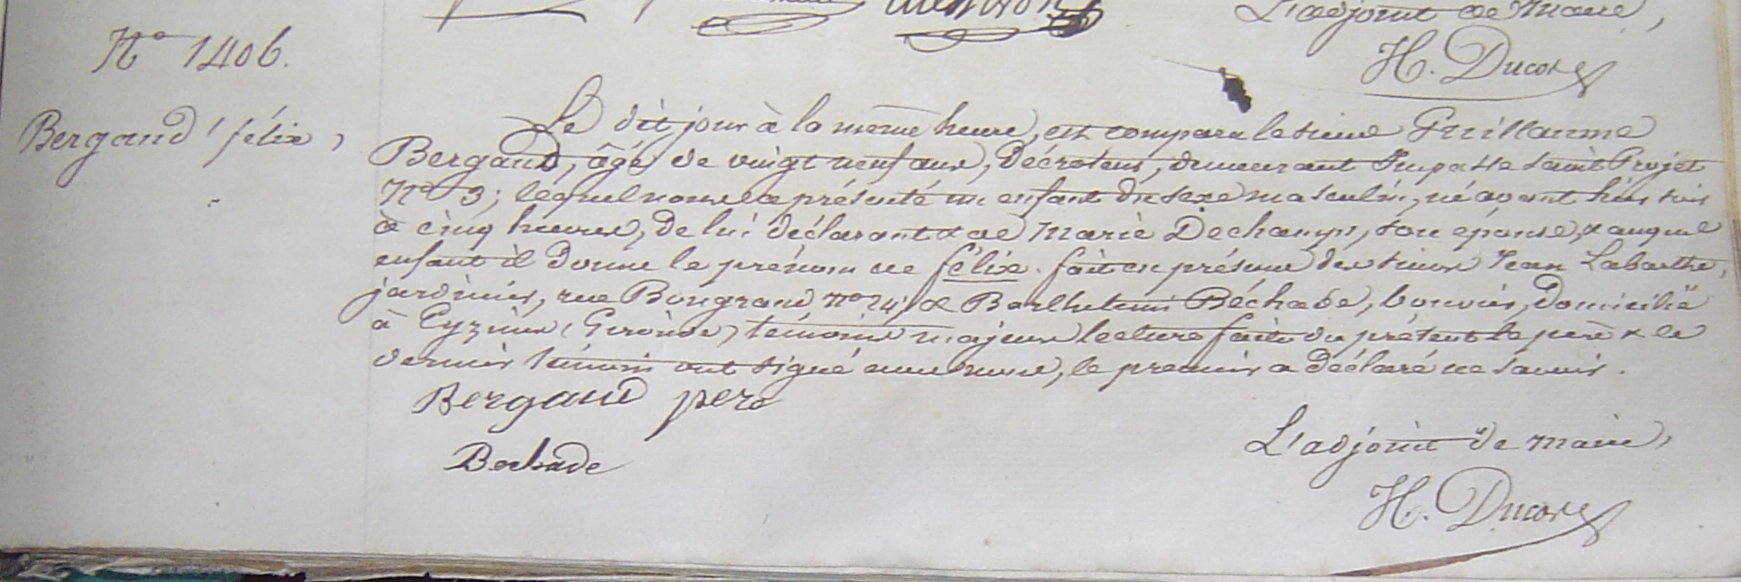 L'adjoint de Maire,
H. Ducos
No 1406.
Bergaud félix,
Le dit jour à la même heure, est comparu le sieur Guillaume
Bergaud, âgé de vingt neuf ans, décroteur, demeurant Impasse Saint Projet
No 3; lequel nous a présenté un enfant du sexe masculin, né avant hier soir
à cinq heures, de lui déclarant & de Marie Dechamps, son épouse, & auquel
enfant il donne le prénom de félix. fait en présence des sieurs Jean Labarthe,
jardinier, rue Bongrand no 24, & Barthelemi Béchade, bouvier, domicilié
à Eyzines (Gironde) témoins majeurs lecture faite du présent le père & le
dernier témoin ont signé avec nous, le premier a déclaré ne savoir.
Bergaud pere
Bechade
L'adjoint de maire,
H. Ducos